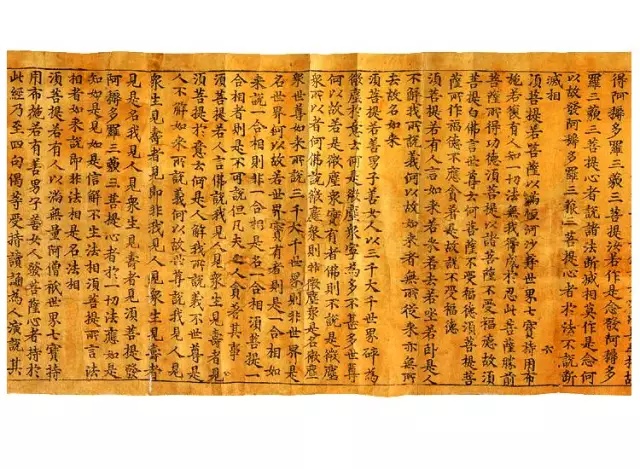 得阿耨多羅三藐三菩提汝若作是念發阿耨多
羅三藐三菩提心者說諸法斷滅相莫作是念何
以故發阿耨多羅三藐三菩提心者於法不說斷
滅相
須菩提若菩薩以滿恒河沙等世界七寶持用布
施若復有人知一切法無我得成於忍此菩薩勝前
菩薩所得功德須菩提以諸菩薩不受福德故須
菩提白佛言世尊云何菩薩不受福德須菩提菩
薩所作福德不應貪著是故說不受福德
須菩提若有人言如來若來若去若坐若臥是人
不解我所說義何以故如來者無所從來亦無所
去故名如來
須菩提若善男子善女人以三千大千世界碎為
微塵於意云何是微塵眾寧為多不甚多世尊
何以故若是微塵眾實有者佛則不說是微塵
眾所以者何佛說微塵眾則非微塵眾是名微塵
眾世尊如來所說三千大千世界則非世界是
名世界何以故若世界實有者則是一合相如
來說一合相則非一合相是名一合相須菩提一
合相者則是不可說但凡夫之人貪著其事
須菩提若人言佛說我見人見眾生見壽者見
須菩提於意云何是人解我所說義不世尊是
人不解如來所說義何以故世尊說我見人見
眾生見壽者見即非我見人見眾生見壽者
見是名我見人見眾生見壽者見須菩提發
阿耨多羅三藐三菩提心者於一切法應如是
知如是見如是信解不生法相須菩提所言法
相者如來說即非法相是名法相
須菩提若有人以滿無量阿僧祇世界七寶持
用布施若有善男子善女人發菩薩心者持於
此經乃至四句偈等受持讀誦為人演說其